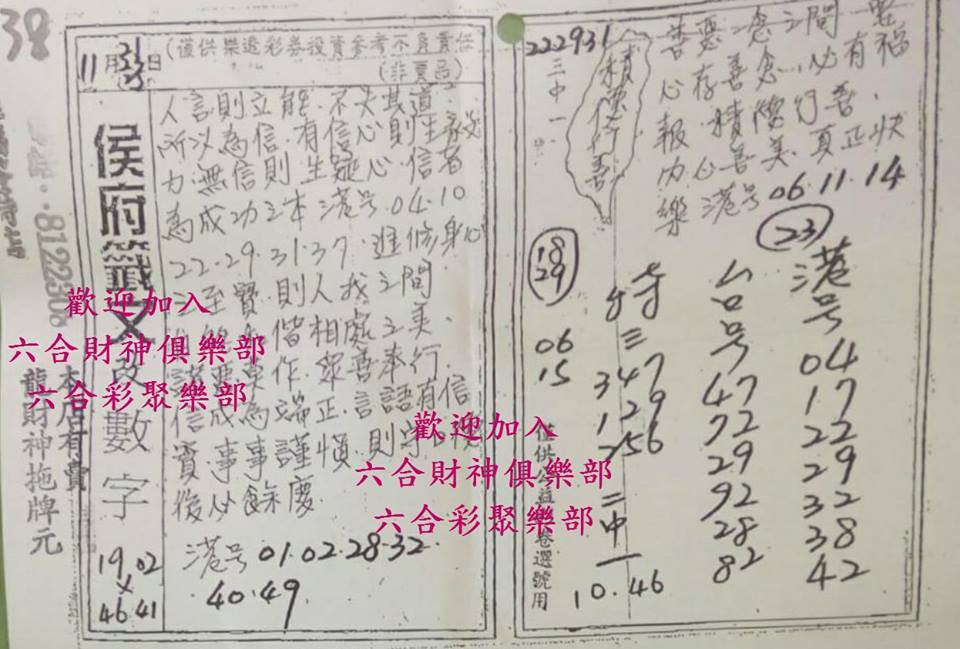 38
(僅供樂透彩券投資參考不負責任
(非賣品)
11月 日
侯府籤文
數字
19 02
×
46 41
人言則立能．不失其道．
所以為信．有信心則生
力．無信則生疑心．信者
為成功之本 港号．04．10．
22．29．31．37．進修身心
至寶．則人我之間
偕相處之美．
作眾善奉行．
信成為端正．言語有信
寶．事事謹慎．則
後必餘慶
港号 01．02．28．32．
40．49．
本店有賣
龍財神拖牌元
歡迎加入
六合財神俱樂部
六合彩聚樂部
222931
三中一
積德行善
善惡一念之間
心存善念．必有
報．積德行善．
內心善美．真正快
樂 港号 06．11．14
23
港号
04
17
22
29
32
38
42
台号
47
72
29
92
28
82
特三
347
129
756
二中一
10．46
18
29
06
15
歡迎加入
六合財神俱樂部
六合彩聚樂部